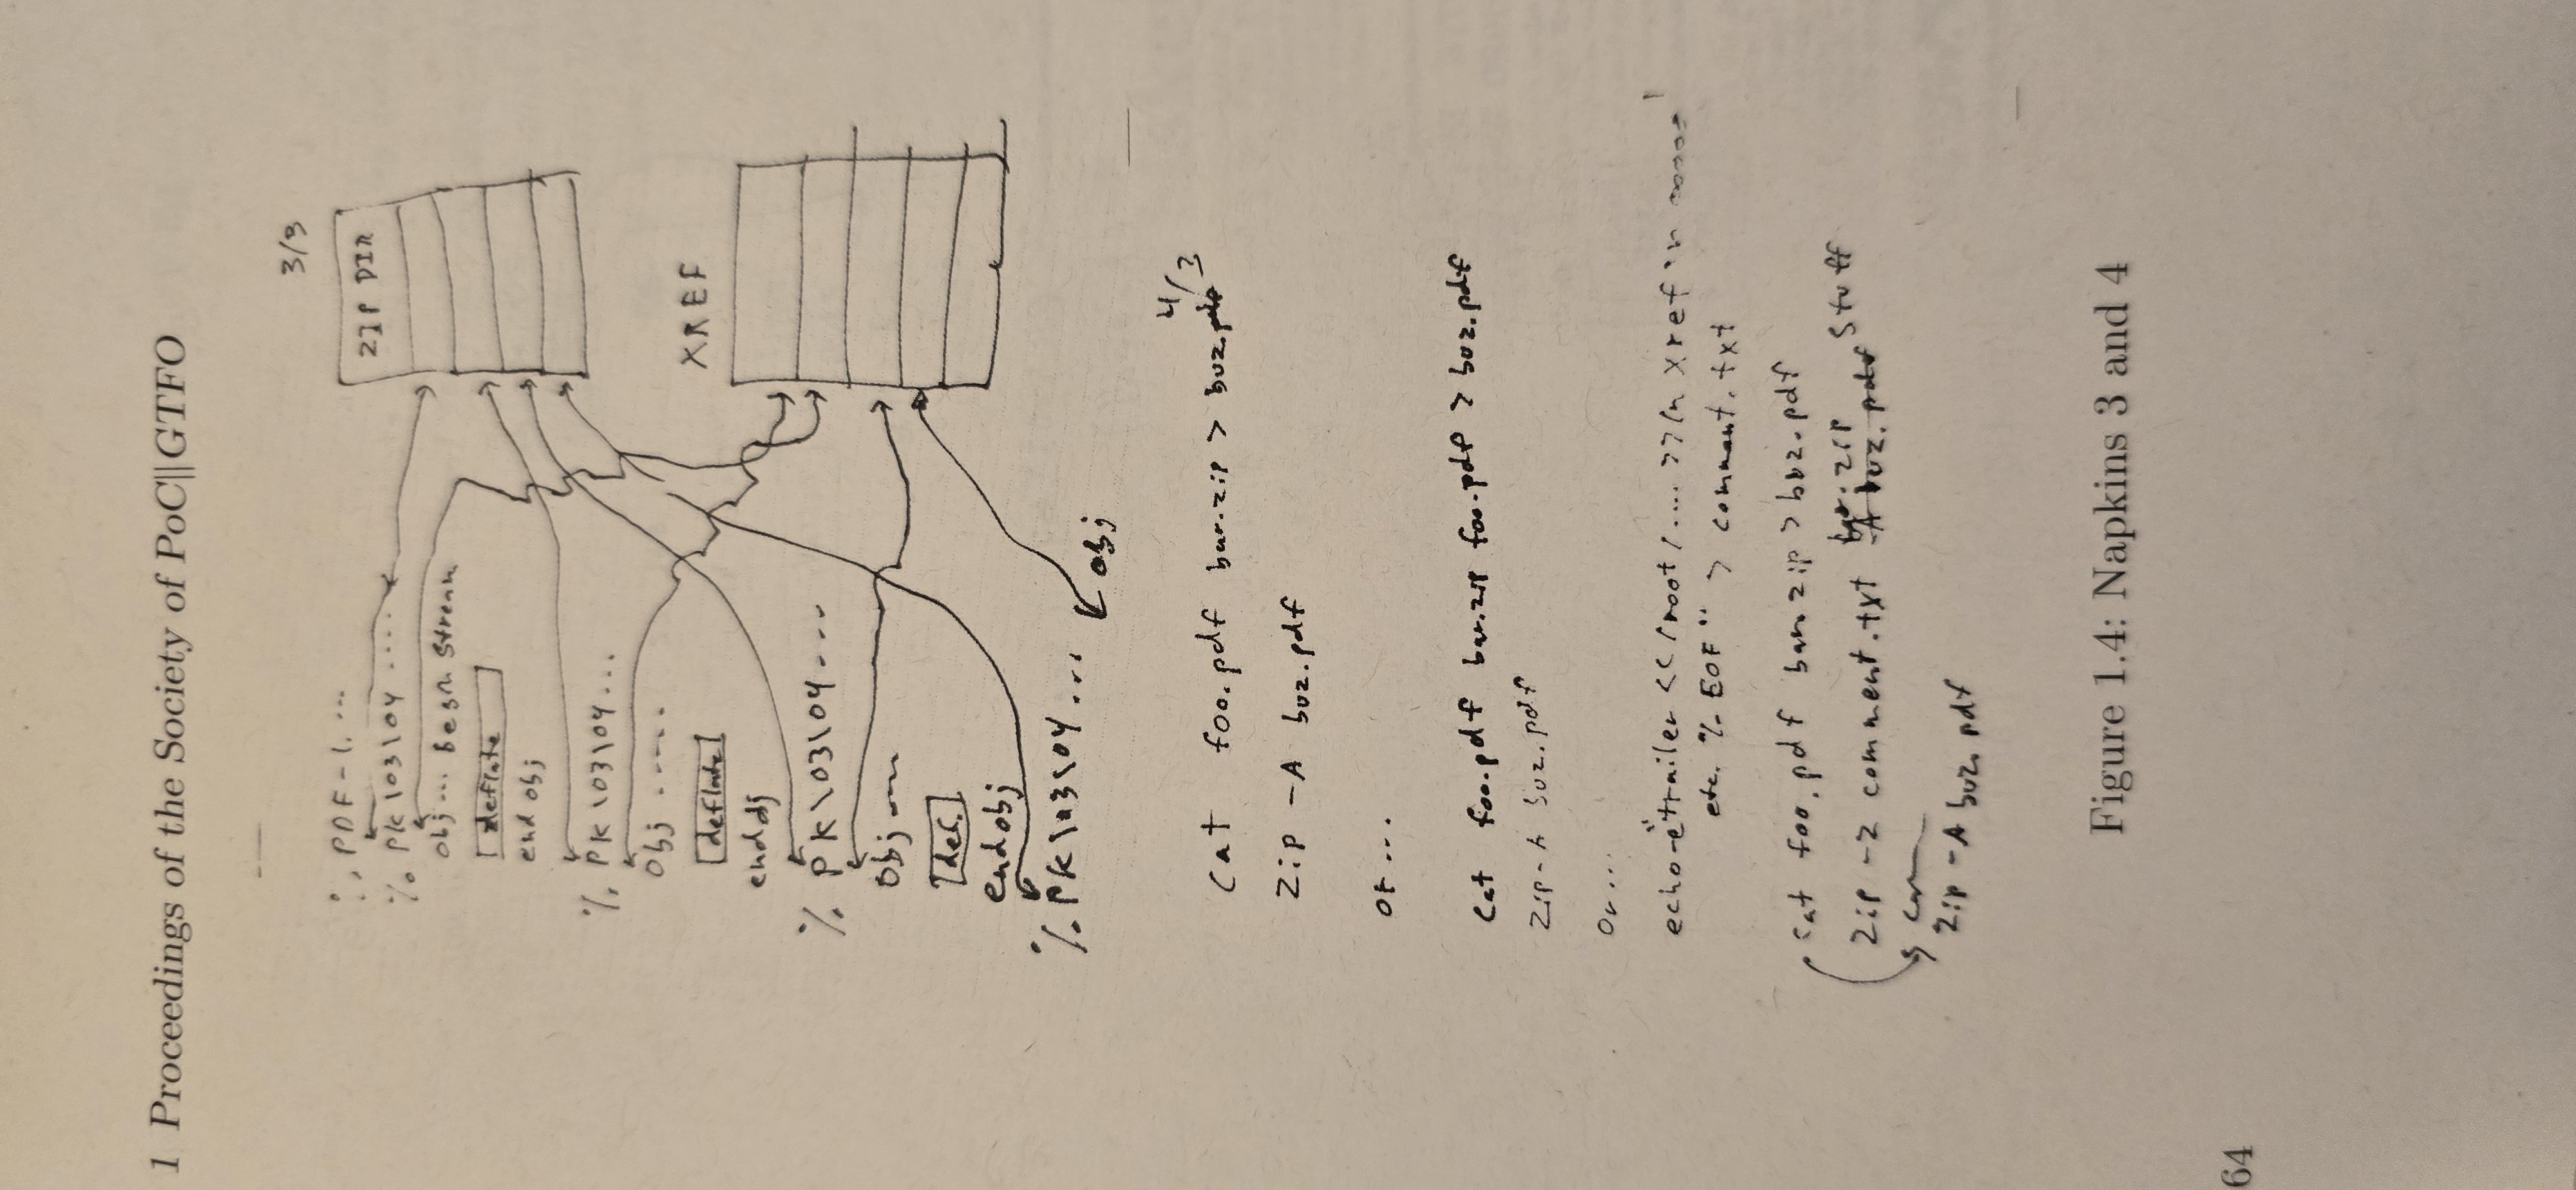 1 Proceedings of the Society of PoC||GTFO
3/3
%PDF-1....
%PK\03\04....
obj... begin stream
deflate
endobj
%PK\03\04...
obj.....
deflate
endobj
%PK\03\04....
obj
def.
endobj
%PK\03\04...
obj
ZIP DIR
XREF
4/3
cat foo.pdf bar.zip > buz.pdf
zip -A buz.pdf
or...
cat foo.pdf bar.zip foo.pdf > buz.pdf
zip -A buz.pdf
or...
echo -e "trailer <</root/....>>\n xref \n
etc. %EOF" > comment.txt
cat foo.pdf bar.zip > buz.pdf
zip -z comment.txt bar.zip stuff
zip -A buz.pdf
Figure 1.4: Napkins 3 and 4
64